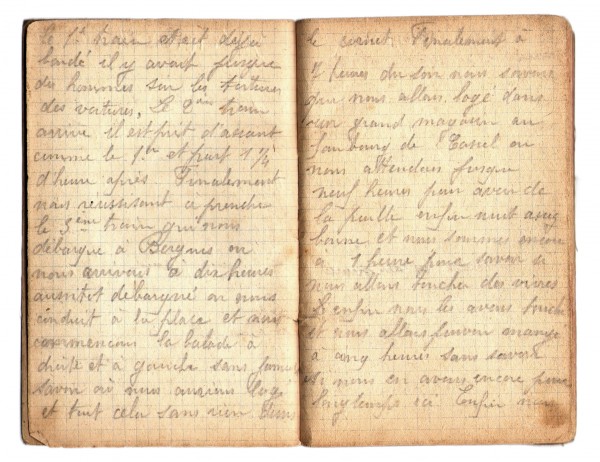 le 1er train etait deja
bardé il y avait jusque
des hommes sur les toitures
des voitures. Le 2ème train
arrive il est prit d'assaut
comme le 1er et part 1 1/4
d'heure après Finalement
nous reussissont a prendre
le 3ème train qui nous
débarque à Bergues ou
nous arrivons a dix heures
aussitot débarqué on nous
conduit à la place et nous
commencons la balade à
droite et à gauche sans
savoir où nous aurions logé
et tout cela sans rien dans
le Finalement à
heures du soir nous savons
que nous allons logé dans
un grand magasin au
faubourg de Cassel ou
nous attendons jusque
neuf heures pour avoir de
la paille enfin nuit assez
bonne et nous sommes encore
a 1 heure pour savoir si
nous allons toucher des vivres
enfin nous les avons touché
et nous allons pouvoir mangé
a cinq heures sans savoir
si nous en avons encore pour
longtemps ici Enfin nous